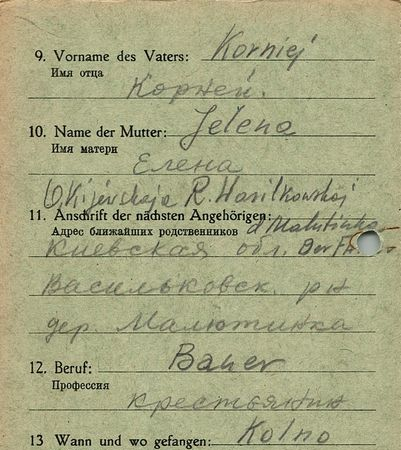 9. Vorname des Vaters: Korniej
Имя отца
Корней.
10. Name der Mutter: Jelena
Имя матери
Елена
O, Kijewskaja R. Wasilkowskoj
11. Anschrift der nächsten Angehörigen: d Malutinka
Адрес ближайших родственников
Киевская обл.
Васильковск. рн
дер. Малютинка
12. Beruf: Bauer
Профессия
крестьянин
13 Wann und wo gefangen: Kolno